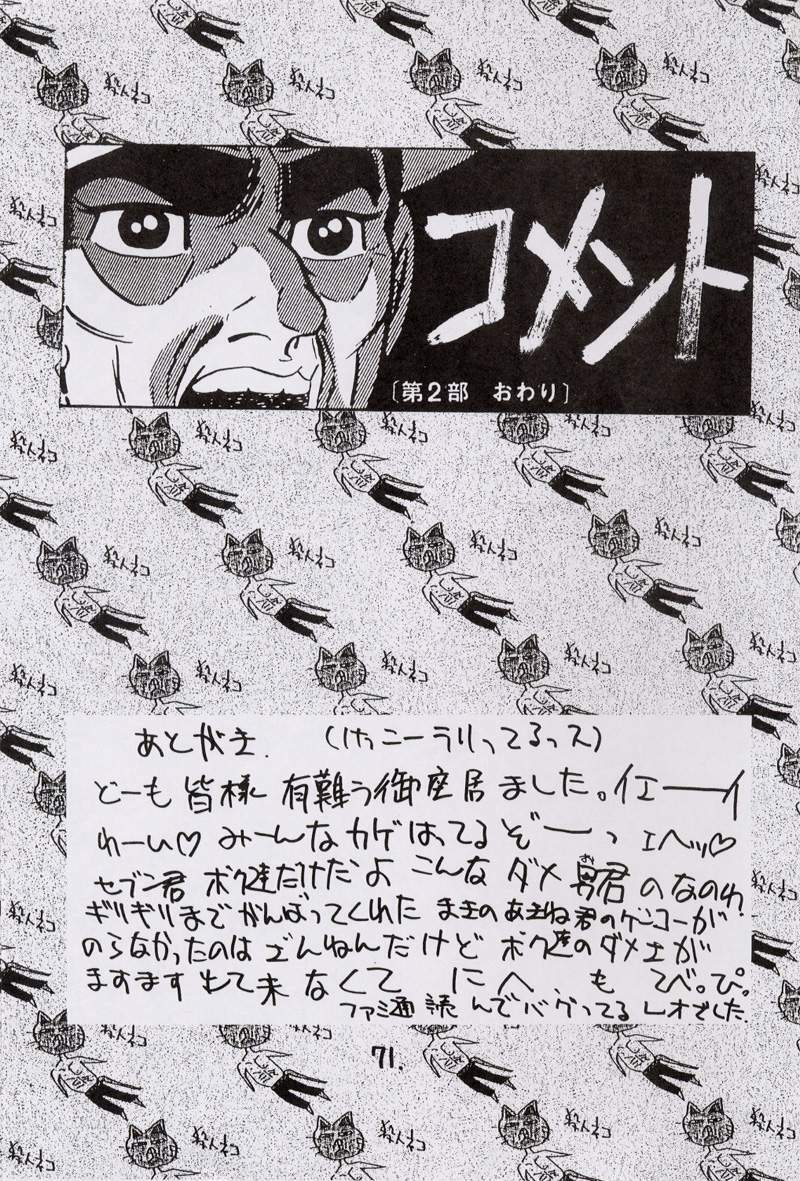 コメント
〔第2部 おわり〕
あとがき. (けっこーラリってるっス)
どーも皆様 有難う御座居ました。イエーーイ
わーい♡ みーんなカゲはってるぞーーっ エヘッ♡
セブン君 ボク達だけだよ こんな ダメ男君のなのわ
ギリギリまでがんばってくれた まきのあきね君のゲンコーが
のらなかったのはざんねんだけど ボク達のダメェが
ますます出て来なくて にへ、も てべ。ぴ。
ファミ通 読んでバグってる レオでした.
71.
殺人ネコ